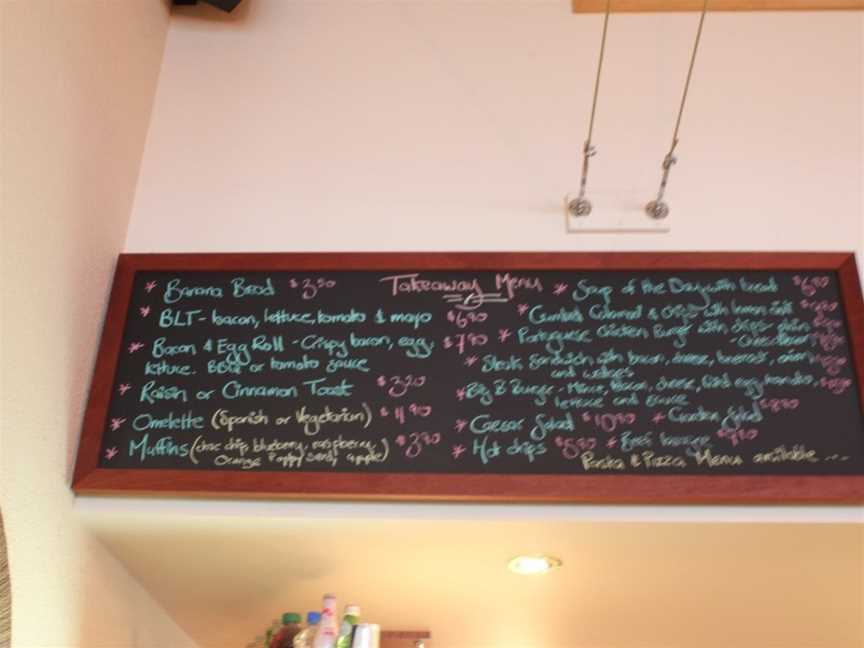 Takeaway Menu
* Banana Bread $3.50
* BLT - bacon, lettuce, tomato & mayo $6.90
* Bacon & Egg Roll - Crispy bacon, egg, $7.90
lettuce. BBQ or tomato sauce
* Raisin or Cinnamon Toast $3.20
* Omelette (Spanish or Vegetarian) $11.90
* Muffins (choc chip, blueberry, raspberry, $3.90
Orange Poppy seed, apple)
* Soup of the Day with bread $6.90
* Crumbed Calamari & Chips with lemon
* Portuguese Chicken Burger with chips - plain
- Cheese
* Steak Sandwich with bacon, cheese, beetroot, onion
and wedges
* Big B Burger - Mince, bacon, cheese, fried egg, tomato,
lettuce and sauce
* Caesar Salad $10.90 * Garden Salad $8.90
* Hot chips $5.50 * Beef
Pasta & Pizza Menu available ...